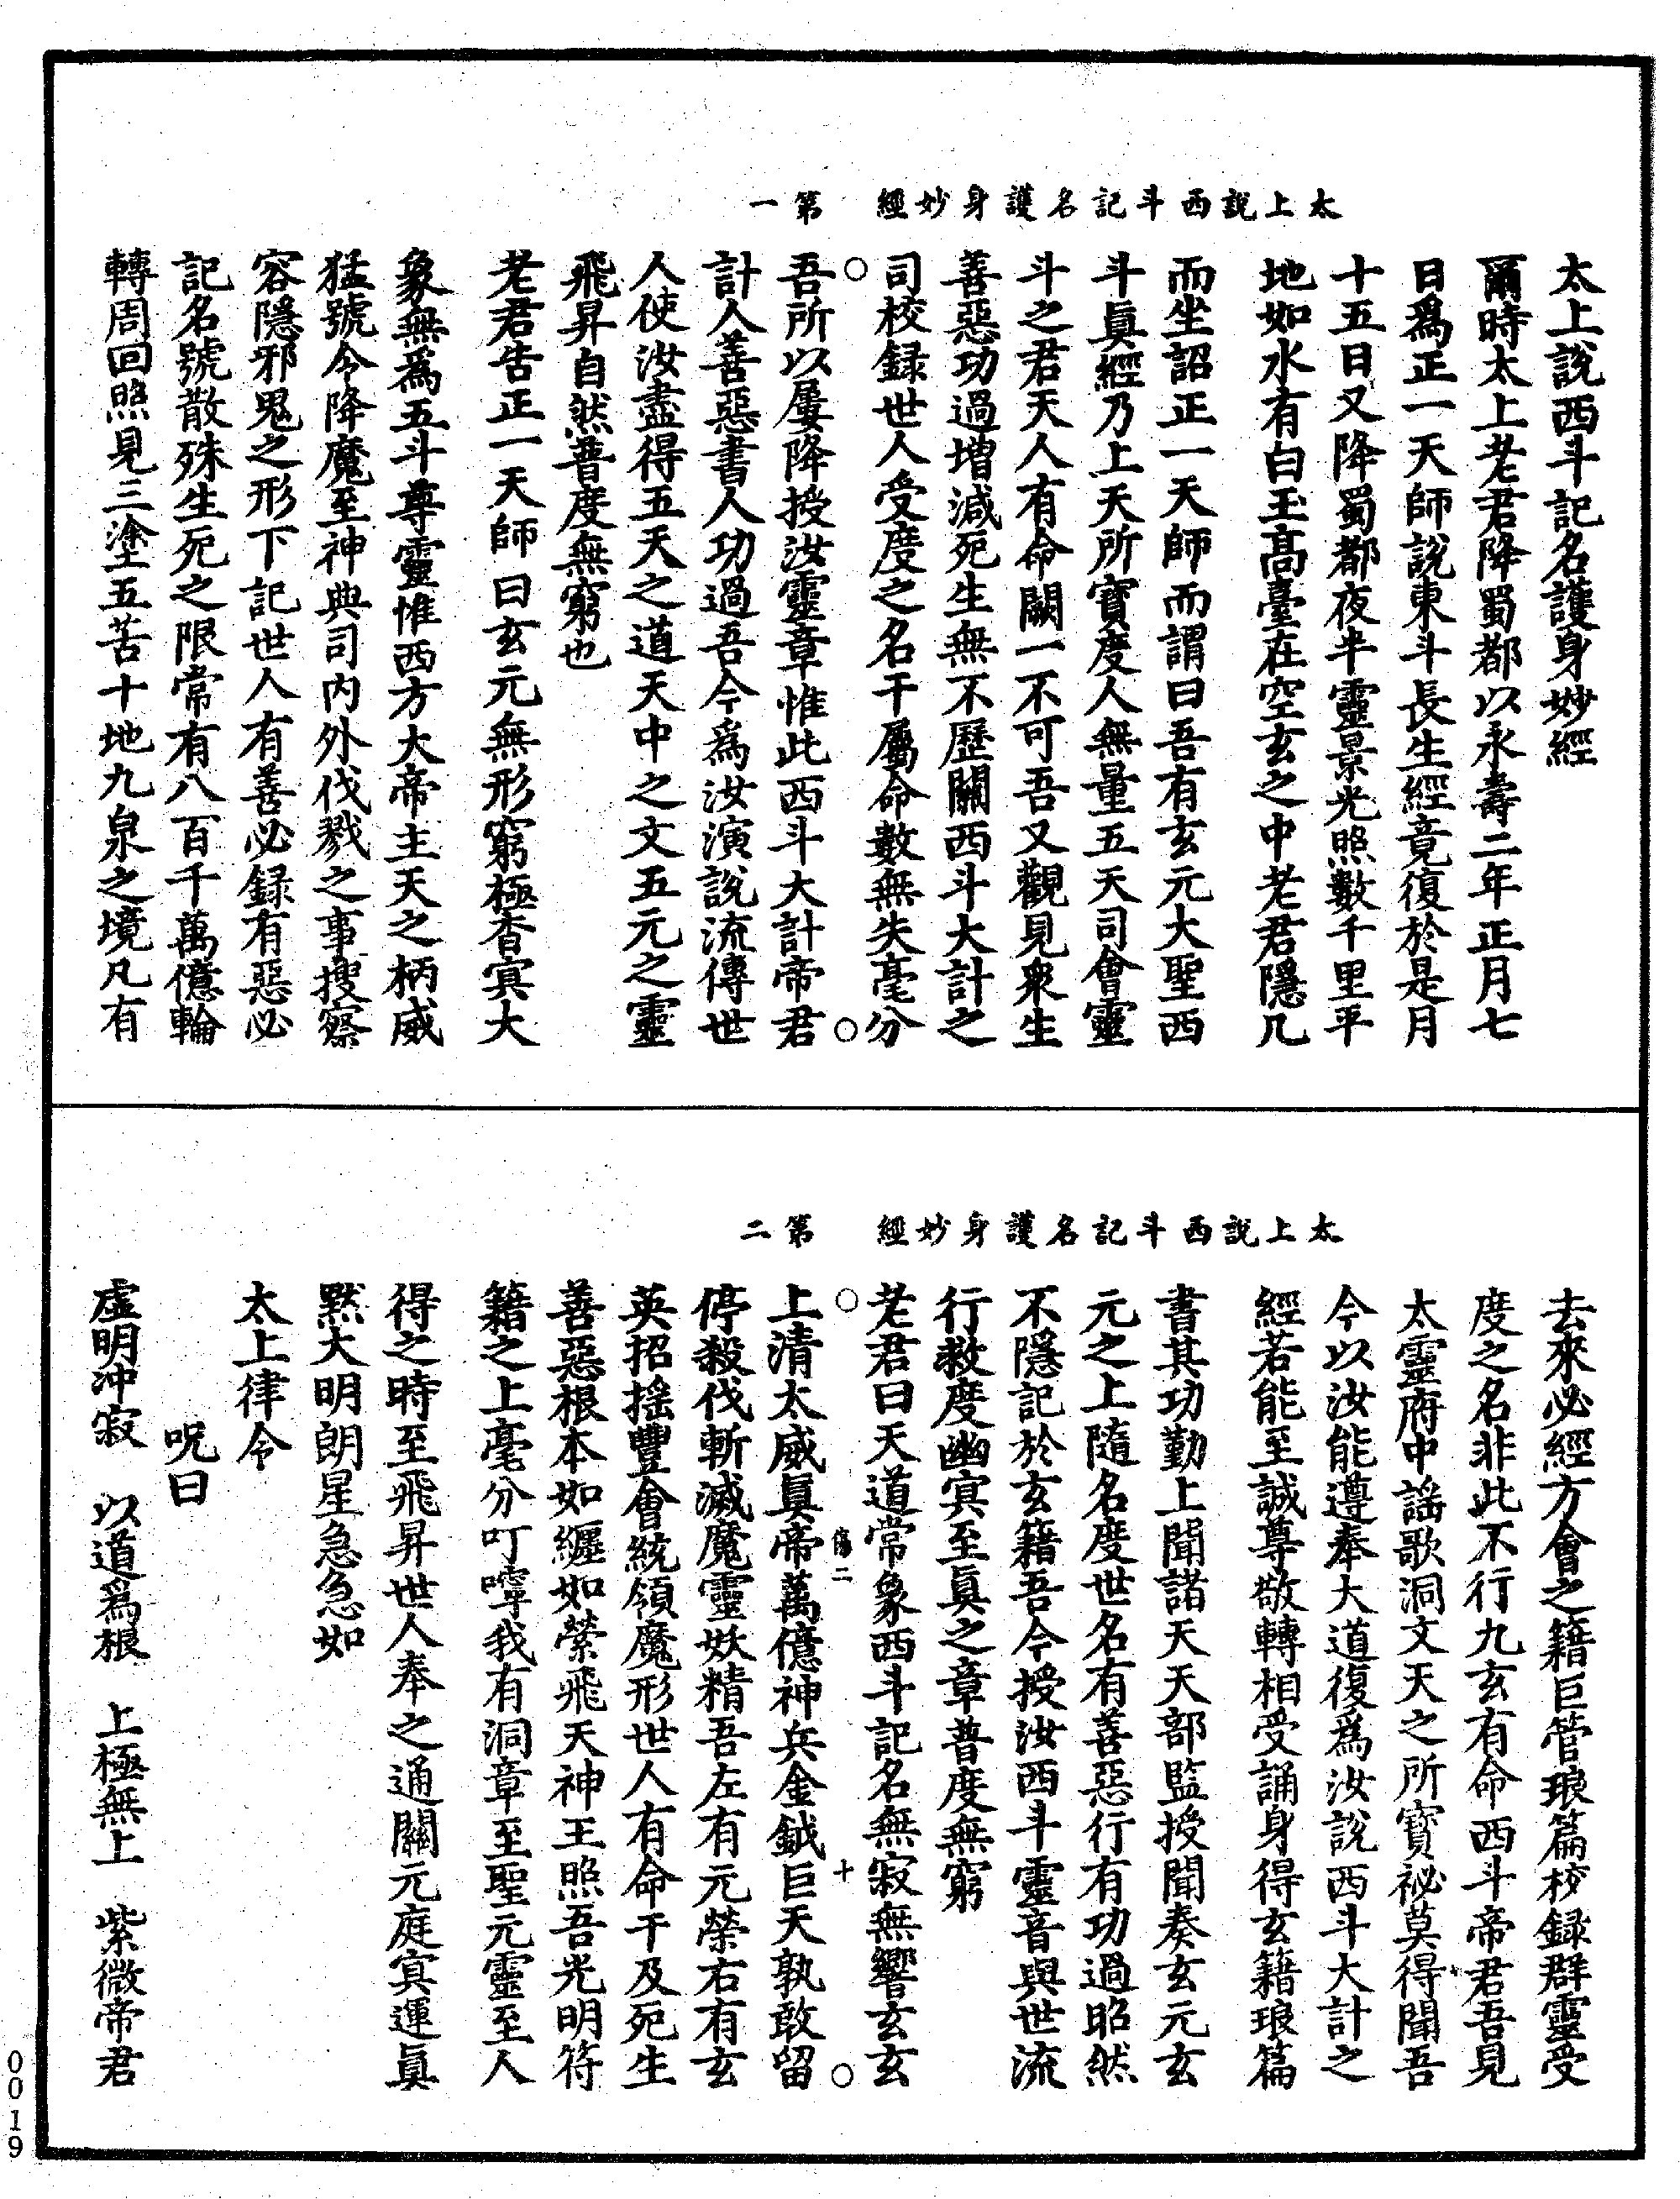 太上說西斗記名護身妙經　第一
太上說西斗記名護身妙經
爾時太上老君降蜀都以永壽二年正月七
日爲正一天師說東斗長生經竟復於是月
十五日又降蜀都夜半靈景光照數千里平
地如水有白玉高臺在空玄之中老君隱几
而坐詔正一天師而謂曰吾有玄元大聖西
斗眞經乃上天所寶度人無量五天司會靈
斗之君天人有命闕一不可吾又觀見衆生
善惡功過增減死生無不歷關西斗大計之
司校録世人受度之名干屬命數無失毫分
吾所以屢降授汝靈章惟此西斗大計帝君
計人善惡書人功過吾今爲汝演說流傳世
人使汝盡得五天之道天中之文五元之靈
飛昇自然普度無窮也
老君告正一天師曰玄元無形窮極杳冥大
象無爲五斗尊靈惟西方大帝主天之柄威
猛號令降魔至神典司内外伐戮之事搜察
容隱邪鬼之形下記世人有善必録有惡必
記名號散殊生死之限常有八百千萬億輪
轉周回照見三塗五苦十地九泉之境凡有
太上說西斗記名護身妙經　第二
去來必經方會之籍巨管琅篇校録群靈受
度之名非此不行九玄有命西斗帝君吾見
太靈府中謠歌洞文天之所寶祕莫得聞吾
今以汝能遵奉大道復爲汝說西斗大計之
經若能至誠尊敬轉相受誦身得玄籍琅篇
書其功勤上聞諸天天部監授聞奏玄元玄
元之上隨名度世名有善惡行有功過昭然
不隱記於玄籍吾今授汝西斗靈音與世流
行救度幽冥至眞之章普度無窮
老君曰天道常象西斗記名無寂無響玄玄
傷二　十
上清太威眞帝萬億神兵金鉞巨天孰敢留
停殺伐斬滅魔靈妖精吾左有元榮右有玄
英招摇豐會統領魔形世人有命干及死生
善惡根本如纏如縈飛天神王照吾光明符
籍之上毫分叮嚀我有洞章至聖元靈至人
得之時至飛昇世人奉之通關元庭冥運眞
黙大明朗星急急如
太上律令
呪曰
虛明冲寂　以道爲根　上極無上　紫微帝君
0019